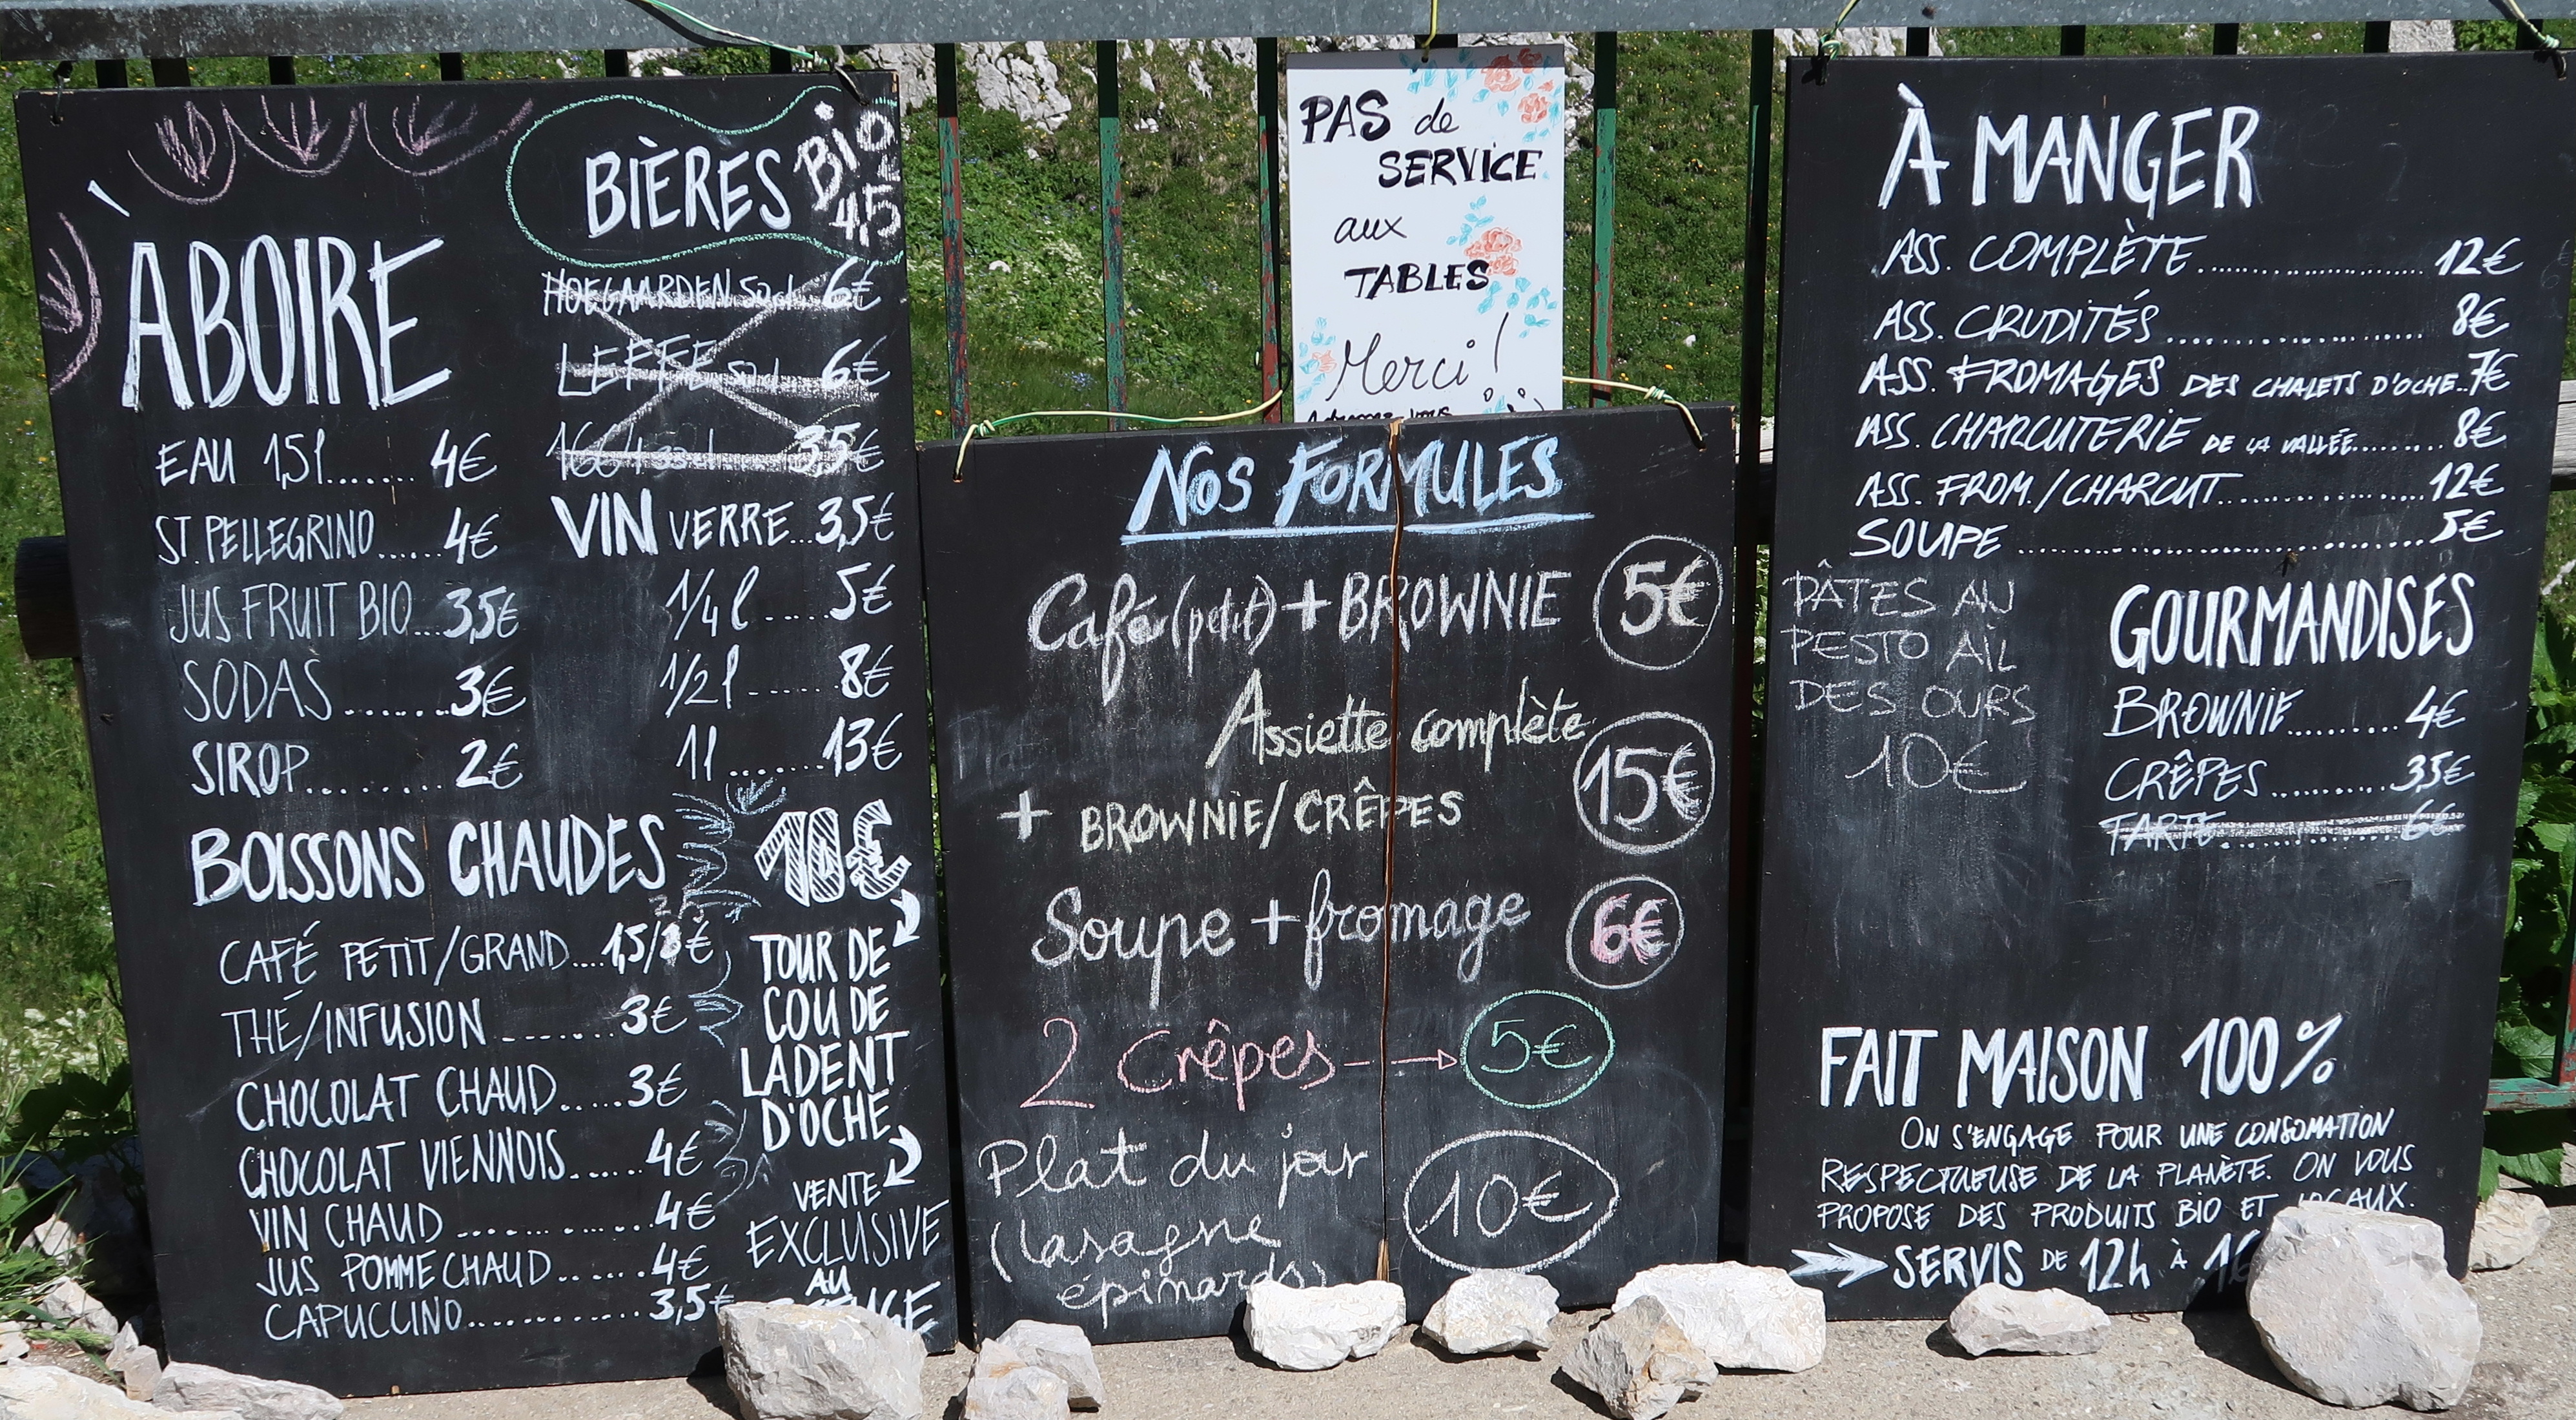 À BOIRE
EAU 1,5l....... 4€
ST. PELLEGRINO..... 4€
JUS FRUIT BIO...3,5€
SODAS........3€
SIROP......... 2€
BIÈRES BIO 4,5
HOEGAARDEN 50cl 6€
LEFFE 6€
1664 33cl 3,5€
VIN VERRE...3,5€
1/4 l...... 5€
1/2 l...... 8€
1l........13€
BOISSONS CHAUDES
CAFÉ PETIT/GRAND....1,5/3€
THÉ/INFUSION........3€
CHOCOLAT CHAUD.....3€
CHOCOLAT VIENNOIS.....4€
VIN CHAUD..............4€
JUS POMME CHAUD......4€
CAPUCCINO............3,5€
10€
TOUR DE
COU DE
LADENT
D'OCHE
VENTE
EXCLUSIVE
AU
PAS de
SERVICE
aux
TABLES
Merci !
NOS FORMULES
Café (petit) + BROWNIE 5€
Assiette complète
+ BROWNIE/CRÊPES 15€
Soupe + fromage 6€
2 Crêpes 5€
Plat du jour
(lasagne
épinards) 10€
À MANGER
ASS. COMPLÈTE.................... 12€
ASS. CRUDITÉS.................... 8€
ASS. FROMAGES DES CHALETS D'OCHE..7€
ASS. CHARCUTERIE DE LA VALLÉE........8€
ASS. FROM./CHARCUT..................12€
SOUPE..............................5€
PÂTES AU
PESTO AÏL
DES OURS
10€
GOURMANDISES
BROWNIE..........4€
CRÊPES...........3,5€
TARTE............6€
FAIT MAISON 100%
ON S'ENGAGE POUR UNE CONSOMATION
RESPECTUEUSE DE LA PLANÈTE. ON VOUS
PROPOSE DES PRODUITS BIO ET LOCAUX.
SERVIS DE 12h À